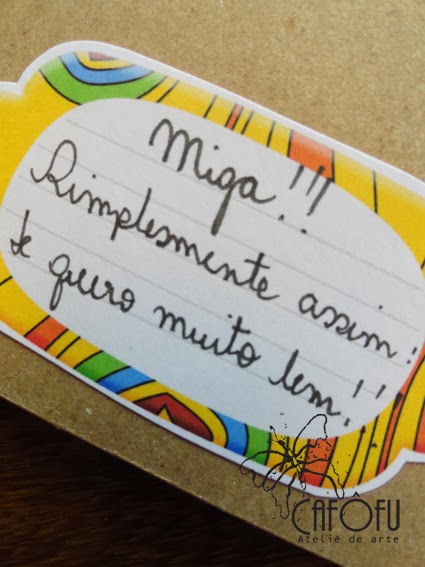 Miga!!!
Simplesmente assim:
te quero muito bem!!
CAFÔFU
Ateliê de arte